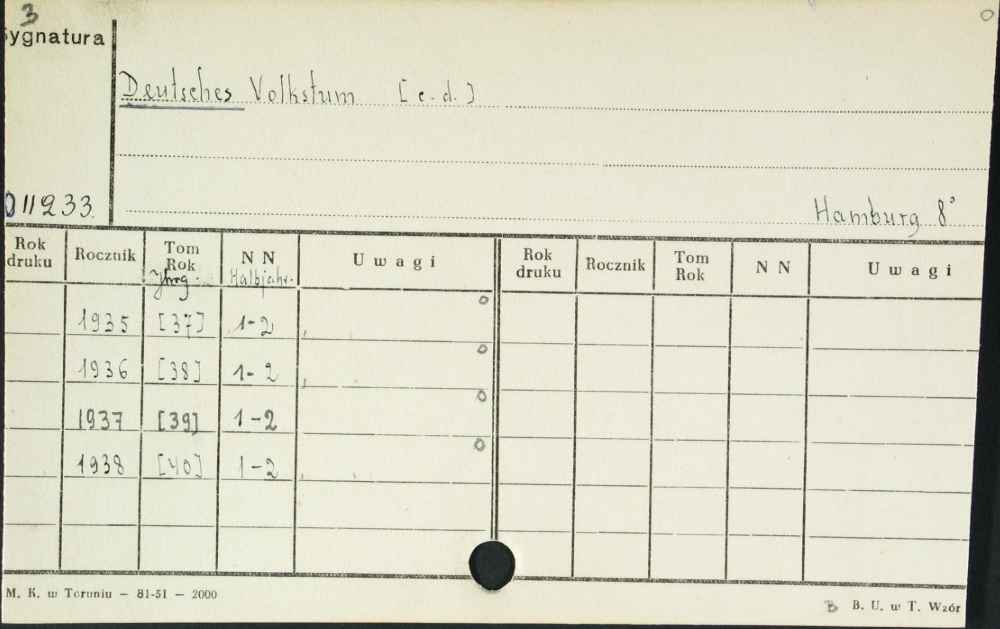 3
Sygnatura
Deutsches Volkstum [c.d.]
011233
Hamburg 8°
Rok druku Rocznik Tom Rok Jhrg. N N Halbjahr. Uwagi Rok druku Rocznik Tom Rok N N Uwagi
1935 [37] 1-2
1936 [38] 1-2
1937 [39] 1-2
1938 [40] 1-2
M. K. w Toruniu — 81-51 — 2000
B. U. w T. Wzór